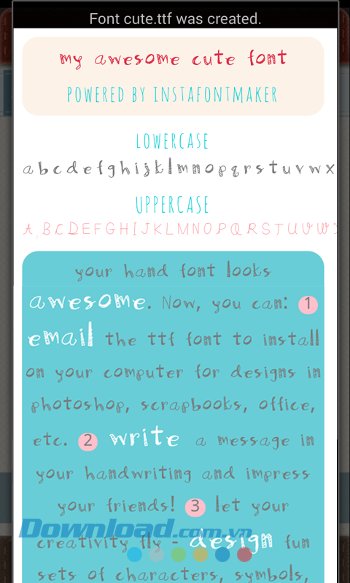 Font cute.ttf was created.
my awesome cute font
POWERED BY INSTAFONTMAKER
LOWERCASE
a b c d e f g h i j k l m n o p q r s t u v w x
UPPERCASE
A B C D E F G H I J K L M N O P Q R S T U V W
your hand font looks
awesome. Now, you can: 1
email the ttf font to install
on your computer for designs in
photoshop, scrapbooks, office,
etc. 2 write a message in
your handwriting and impress
your friends! 3 let your
Download.com.vn
creativity fly - design fun
sets of characters, symbols,